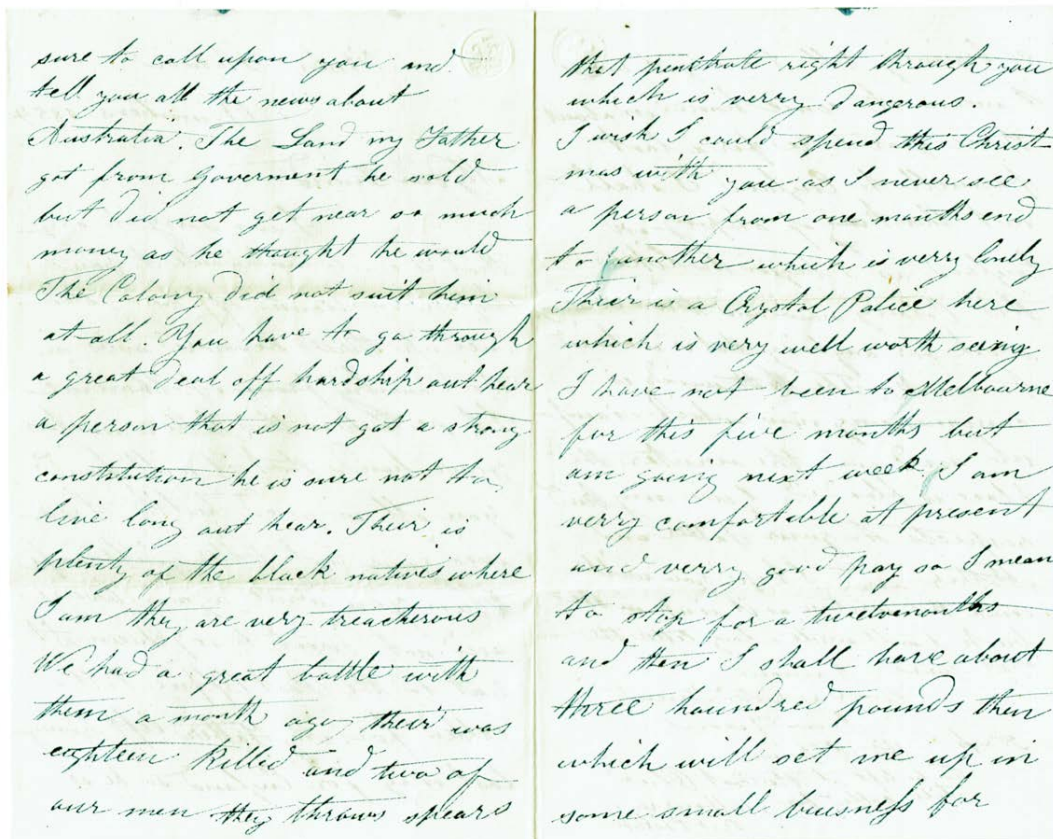 sure to call upon you and
tell you all the news about
Australia. The Land my Father
got from Goverment he sold
but did not get near so much
money as he thought he would
The Colony did not suit him
at-all. You have to go through
a great deal off hardship out hear
a person that is not got a strong
constitution he is sure not to
live long out hear. Their is
plenty of the black natives where
I am they are very treacherous
We had a great battle with
them a month ago their was
eighteen killed and two of
our men they throws spears
that penetrate right through you
which is verry dangerous.
I wish I could spend this Christ
mas with you as I never see
a person from one months end
to another which is very lonely
Their is a Crystal Palice here
which is very well worth seeing
I have not been to Melbourne
for this five months but
am going next week I am
verry comfortable at present
and verry good pay so I mean
to stop for a twelvemonths
and then I shall have about
three haundred pounds then
which will set me up in
some small buisness for